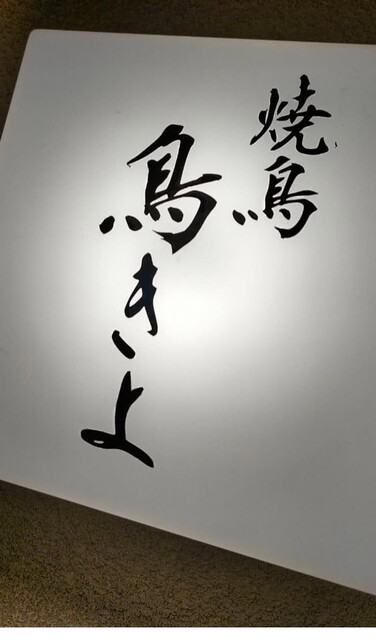 焼鳥
鳥きよ